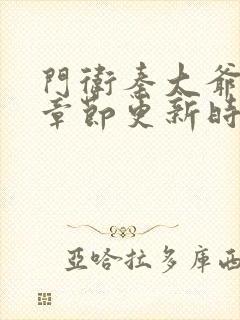 門衛秦大爺
章節更新時
亞哈拉多庫西